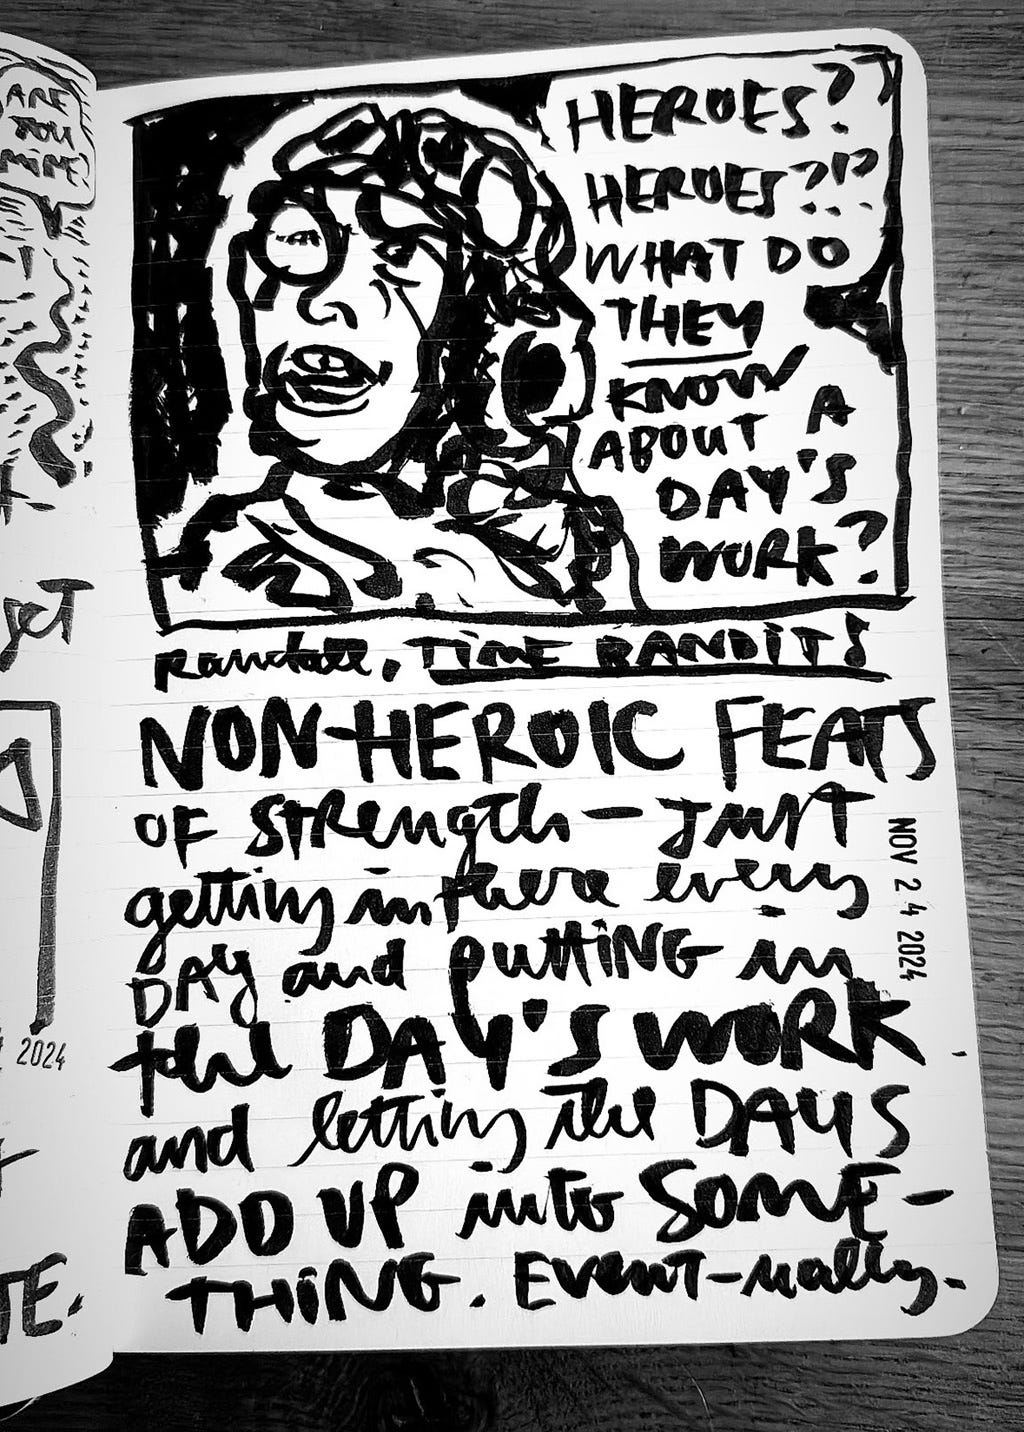 ARE
YOU
MINE
HEROES?
HEROES?!?
WHAT DO
THEY
KNOW
ABOUT A
DAY'S
WORK?
Randall, TIME BANDITS
NON-HEROIC FEATS
OF STRENGTH — JUST
getting in there every
DAY and PUTTING in
the DAY'S WORK
and letting the DAYS
ADD UP into SOME-
THING. EVENT-ually.
NOV 24 2024
2024
TE.